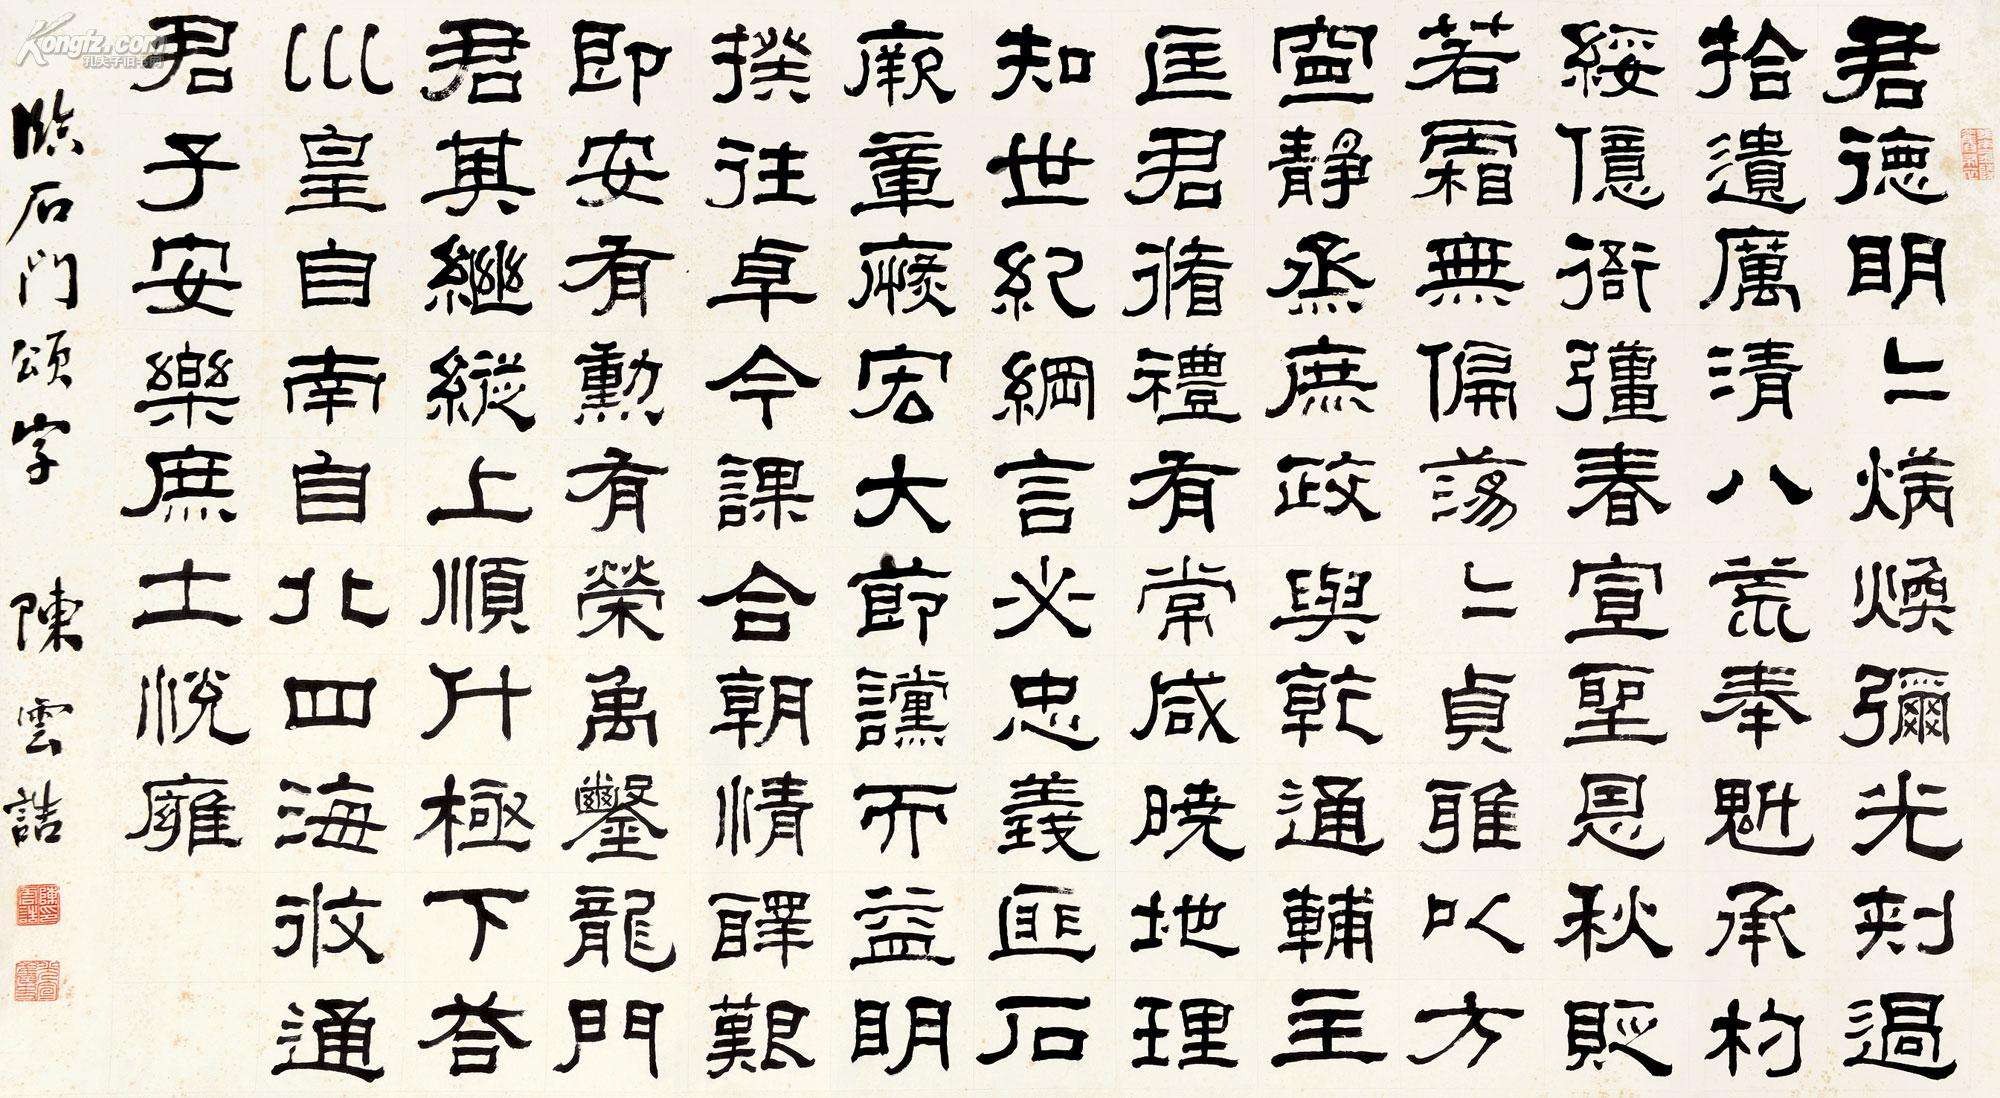 君德明〻炳煥彌光刺過
拾遺厲清八荒奉魁承杓
綏億衙彊春宣聖恩秋貶
若霜無偏蕩〻貞雅以方
寧靜烝庶政與乾通輔主
匡君循禮有常咸曉地理
知世紀綱言必忠義匪石
厥章恢宏大節讜而益明
揆往卓今謀合朝情醳艱
即安有勳有榮禹鑿龍門
君其繼縱上順斗極下答
巛皇自南自北四海攸通
君子安樂庶士悅廱
臨石門頌字 陳雲誥
Kongfz.com
孔夫子旧书网